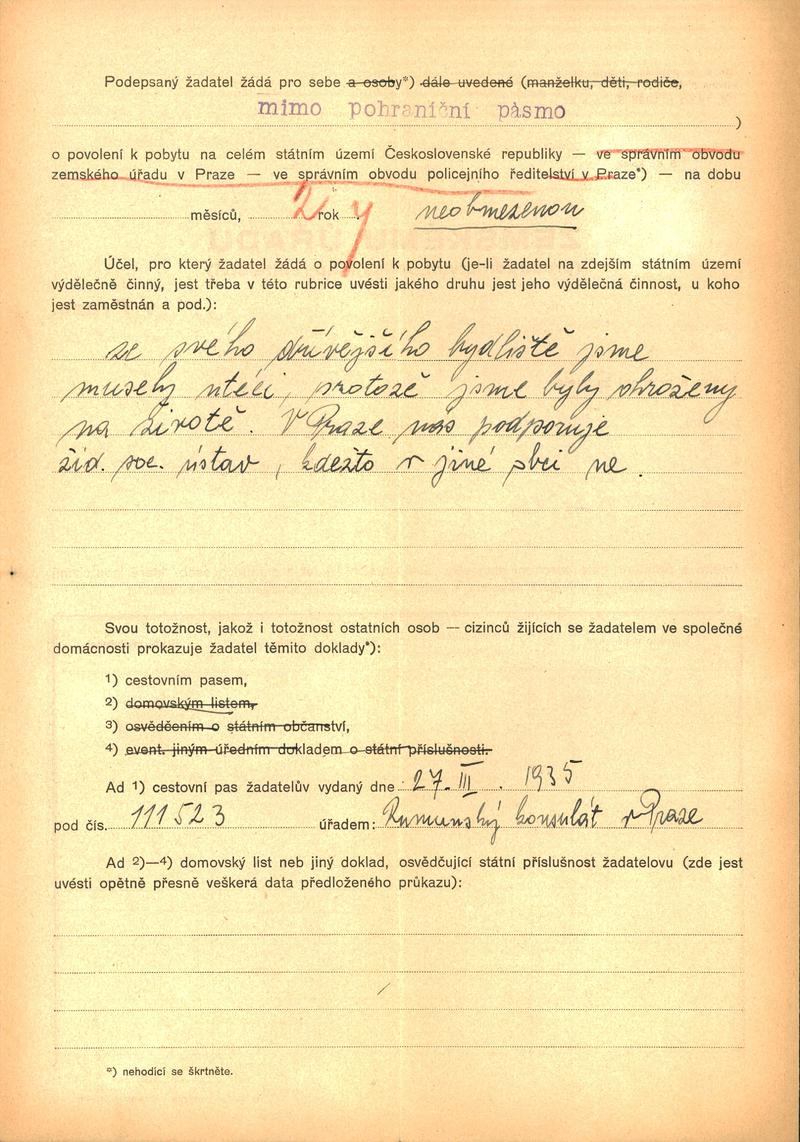 Podepsaný žadatel žádá pro sebe a osoby*) dále uvedené (manželku, děti, rodiče,
mimo pohraniční pásmo
)
o povolení k pobytu na celém státním území Československé republiky — ve správním obvodu
zemského úřadu v Praze — ve správním obvodu policejního ředitelství v Praze*) — na dobu
měsíců, 2 rok y neobmezenou
Účel, pro který žadatel žádá o povolení k pobytu (je-li žadatel na zdejším státním území
výdělečně činný, jest třeba v této rubrice uvésti jakého druhu jest jeho výdělečná činnost, u koho
jest zaměstnán a pod.):
ze svého dřívějšího bydliště jsme
musely utéci, protože jsme byly ohroženy
na životě. V Praze nás podporuje
žid. soc. ústav, kdežto v jiné obci ne.
Svou totožnost, jakož i totožnost ostatních osob — cizinců žijících se žadatelem ve společné
domácnosti prokazuje žadatel těmito doklady*):
1) cestovním pasem,
2) domovským listem,
3) osvědčením o státním občanství,
4) event. jiným úředním dokladem o státní příslušnosti.
Ad 1) cestovní pas žadatelův vydaný dne 27. III. 1935
pod čís. 111523 úřadem: Rumunský konsulát v Praze
Ad 2)—4) domovský list neb jiný doklad, osvědčující státní příslušnost žadatelovu (zde jest
uvésti opětně přesně veškerá data předloženého průkazu):
*) nehodící se škrtněte.